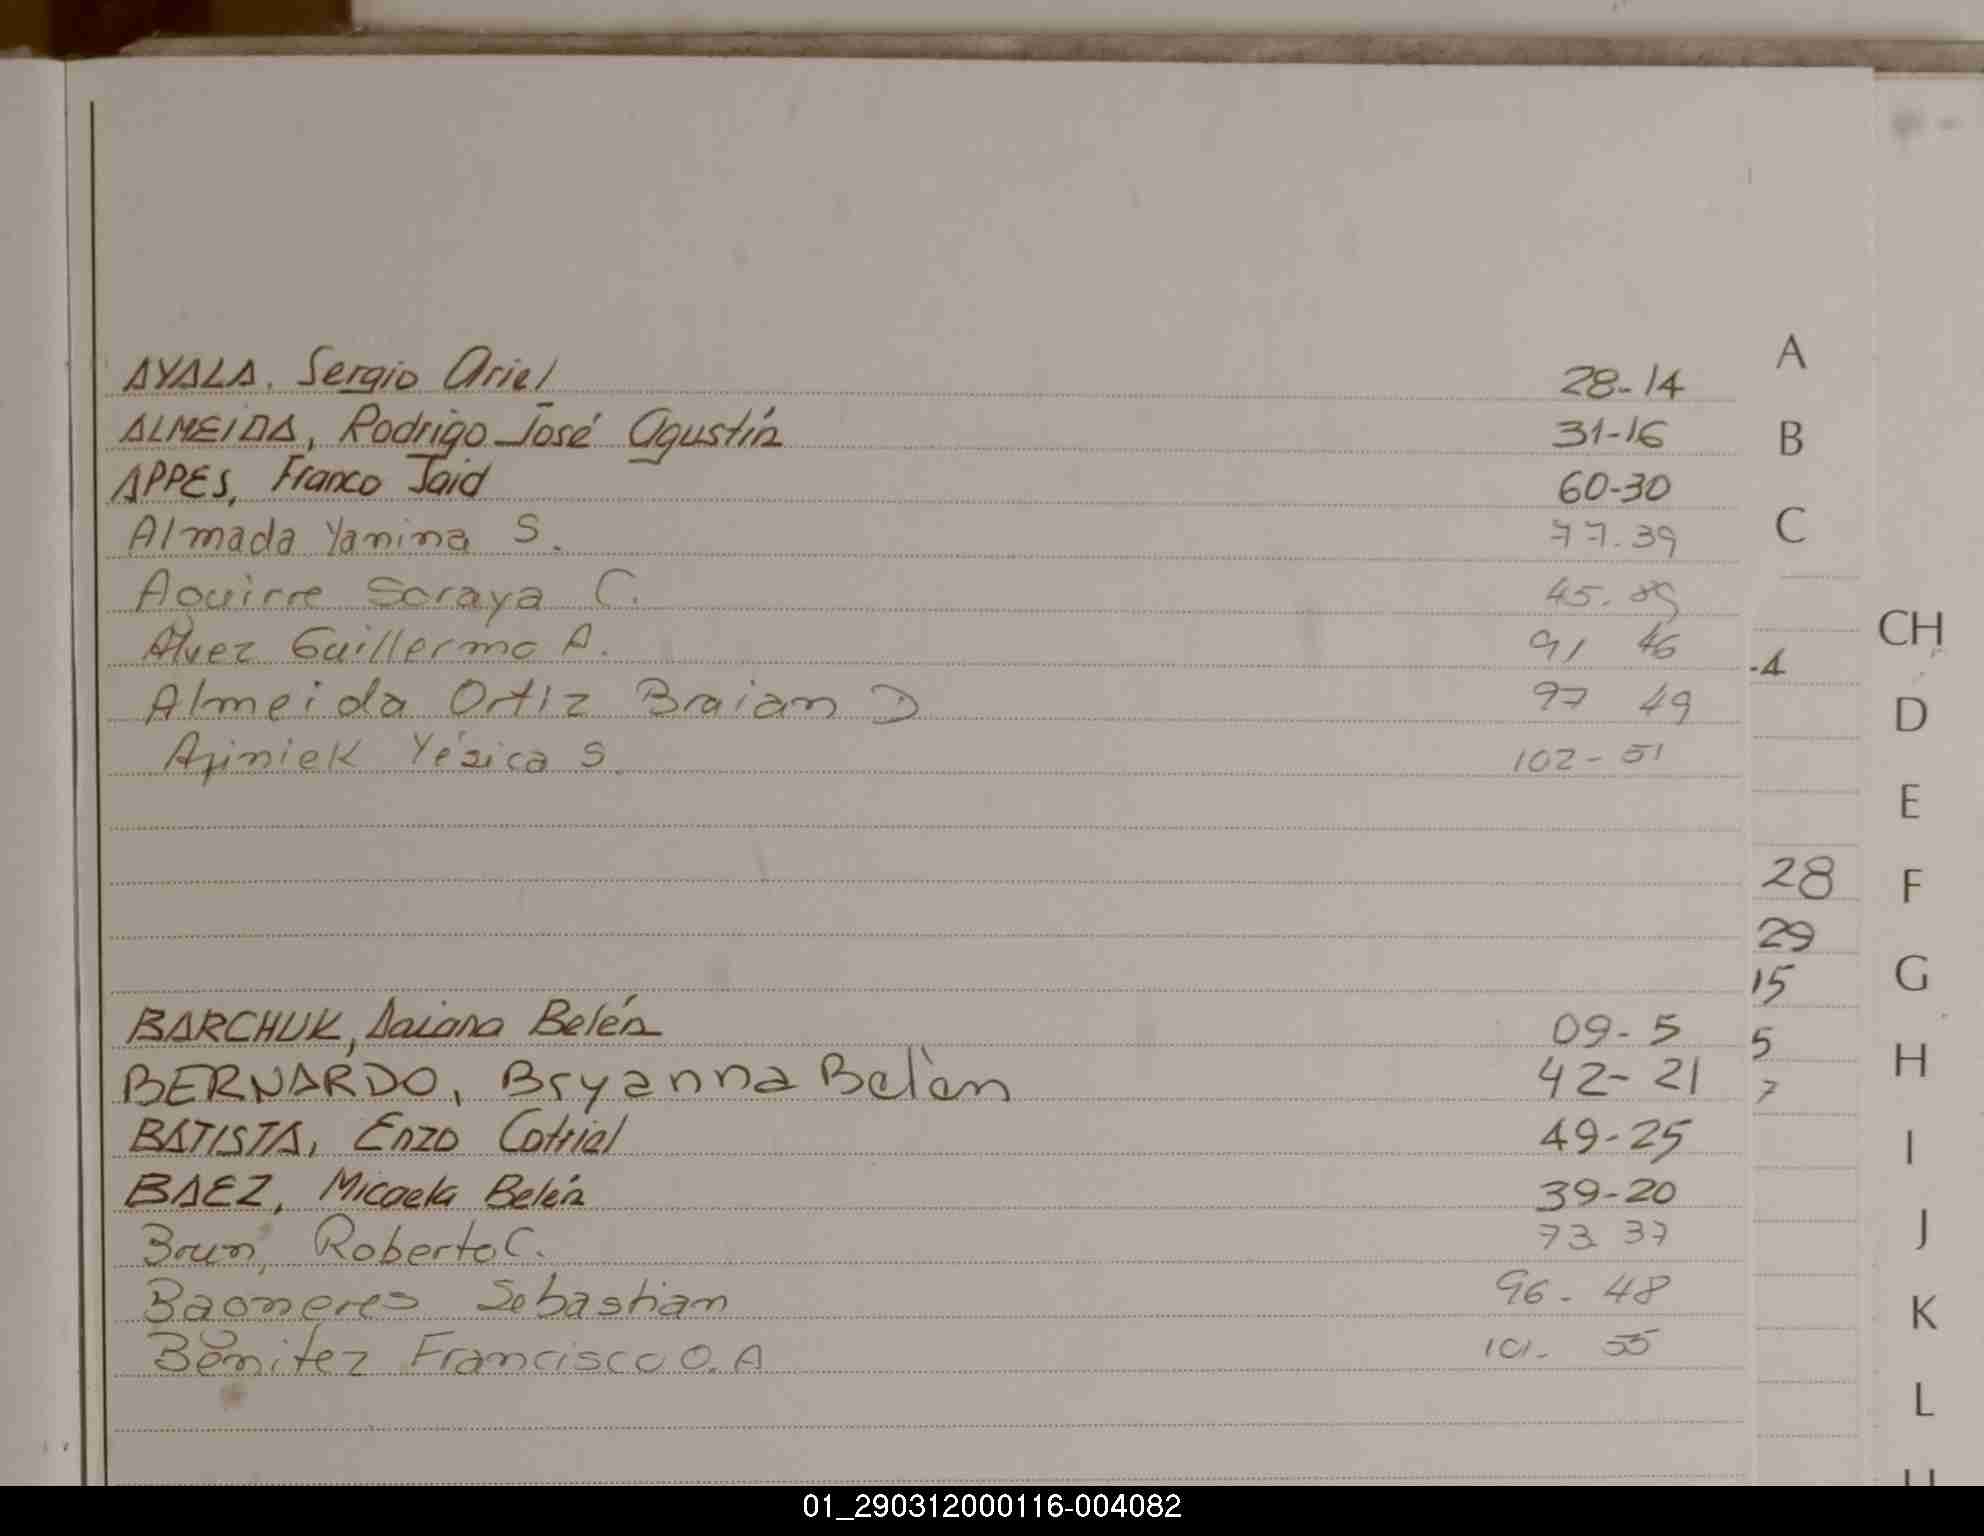 AYALA, Sergio Ariel 28-14
ALMEIDA, Rodrigo José Agustín 31-16
APPES, Franco Jaid 60-30
Almada Yanina S. 77.39
Aguirre Soraya C. 45.
Alvez Guillermo A. 91 46
Almeida Ortiz Braian D 97 49
Yésica S. 102-51
BARCHUK, Daiana Belén 09-5
BERNARDO, Bryanna Belèn 42-21
BATISTA, Enzo Cotriel 49-25
BAEZ, Micaela Belén 39-20
Brun, Roberto C. 73 37
Sebastian 96-48
Benitez Francisco O. A 101-
A
B
C
-4
28
29
15
5
7
CH
D
E
F
G
H
I
J
K
L
01_290312000116-004082